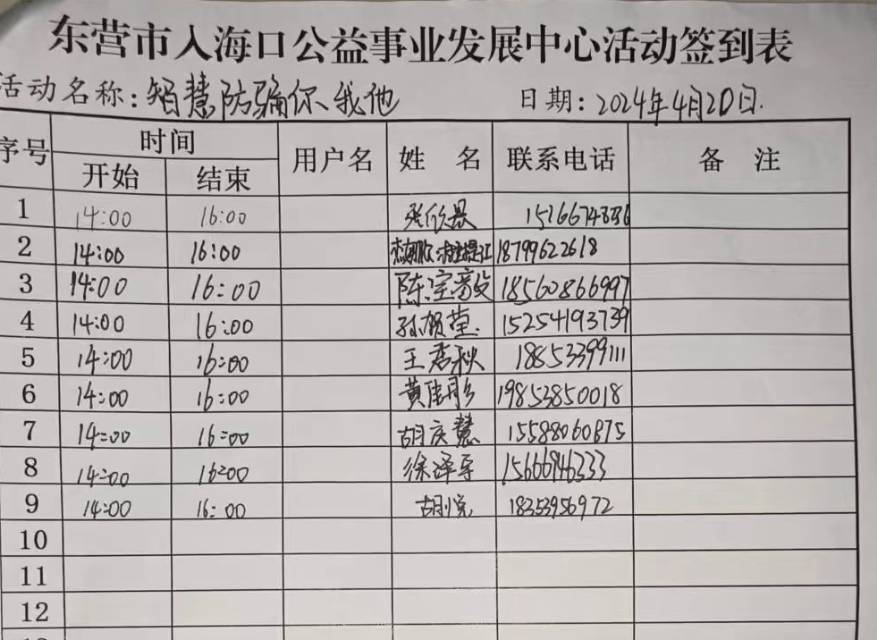 东营市入海口公益事业发展中心活动签到表
活动名称:智慧防骗你、我他 日期:2024年4月20日.
序号 时间 用户名 姓名 联系电话 备注
开始 结束
1 14:00 16:00 张欣晨
2 14:00 16:00 18799622618
3 14:00 16:00 陈宝毅 18560866997
4 14:00 16:00 孙贺莹 15254193739
5 14:00 16:00 王君秋 18853399111
6 14:00 16:00 黄佳彤 19853850018
7 14:00 16:00 胡庆慧 15588060875
8 14:00 16:00 徐泽军 15666946333
9 14:00 16:00 胡悦 18353956972
10
11
12